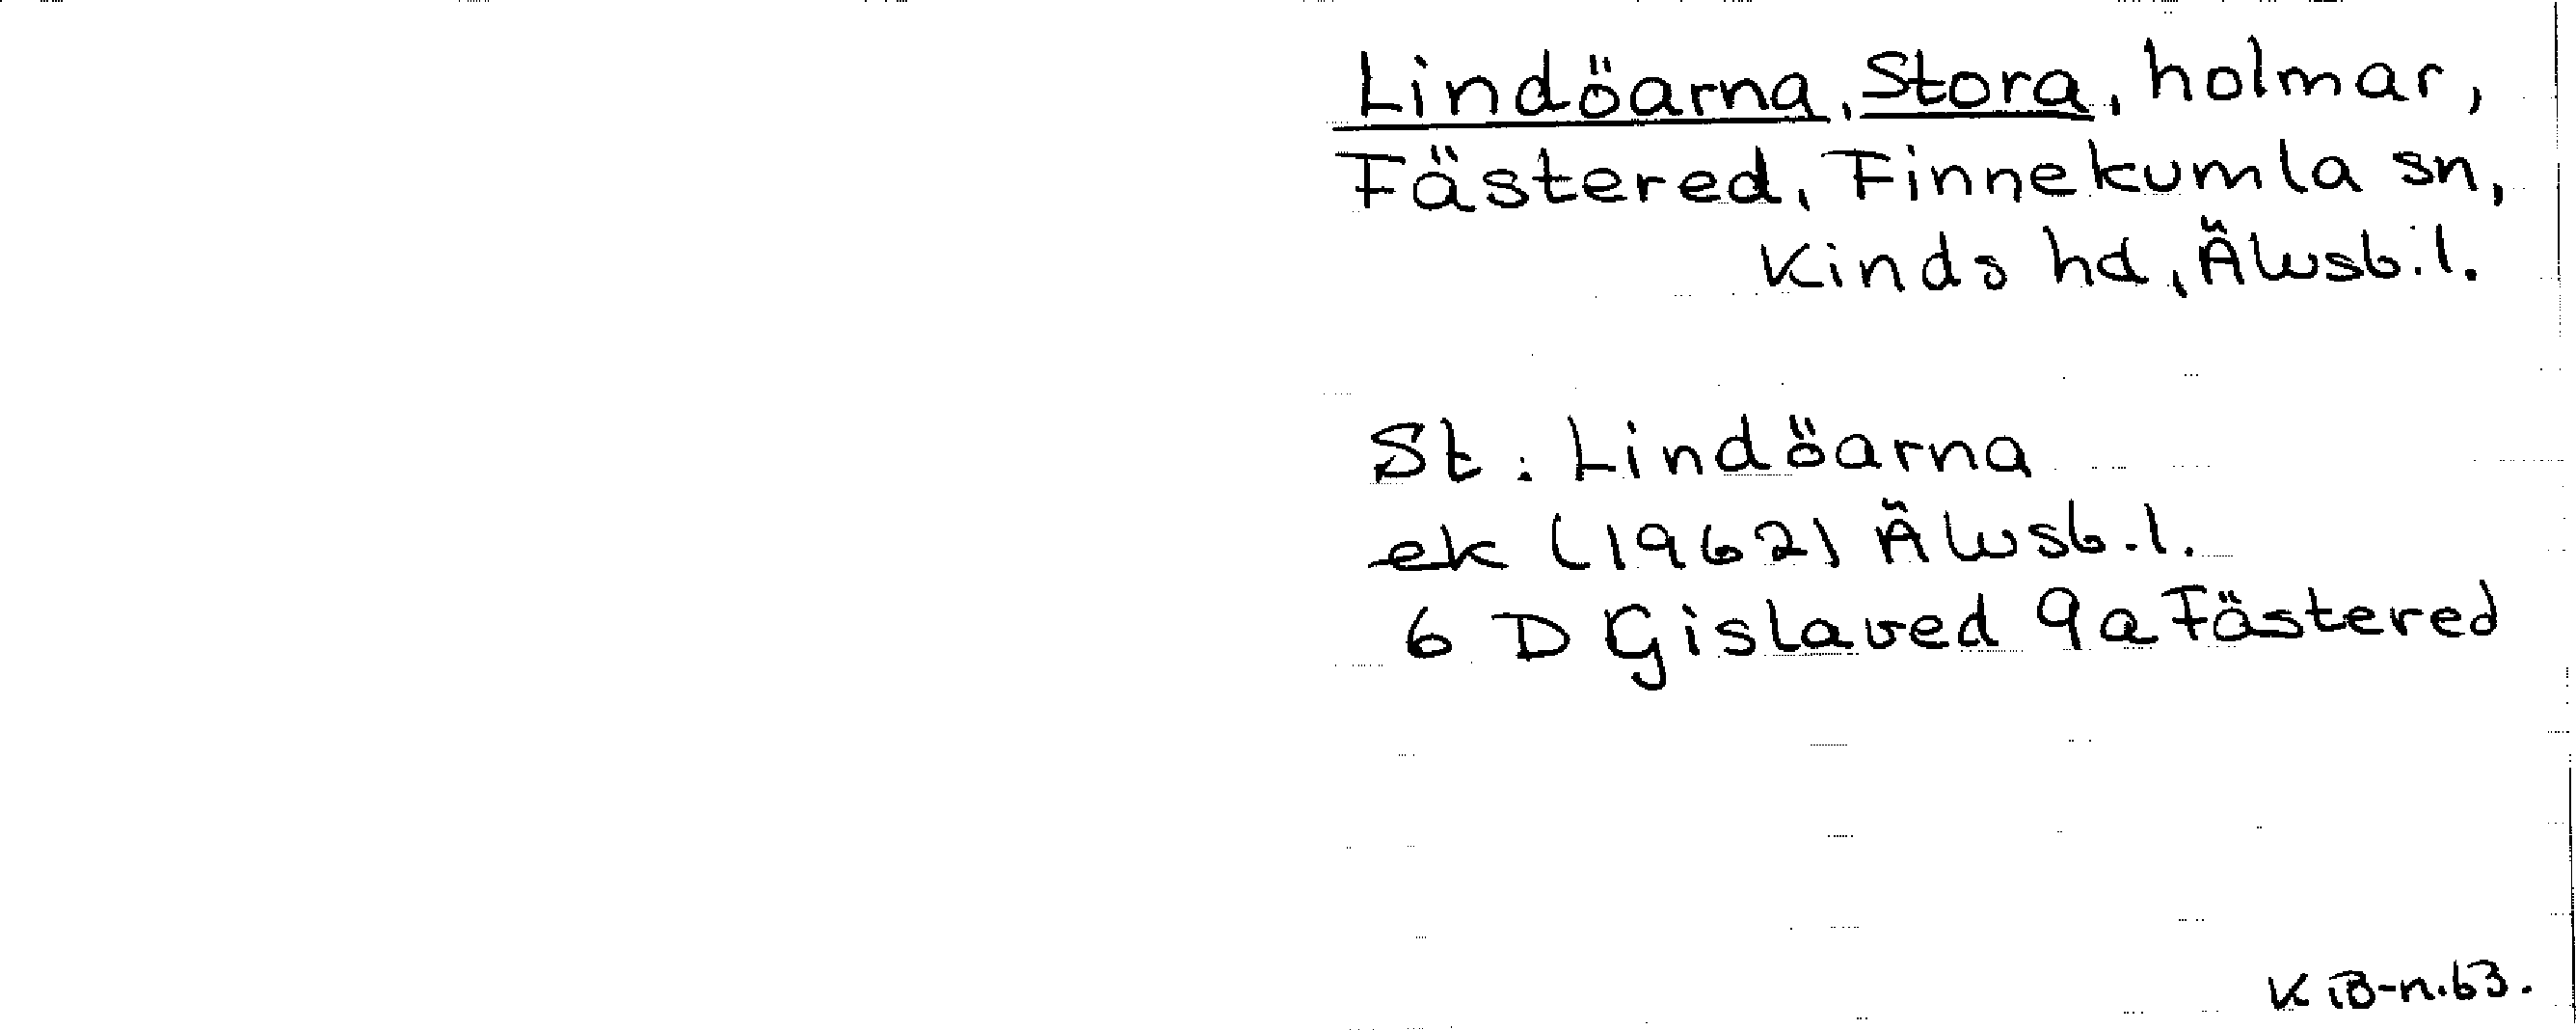 Lindöarna, Stora, holmar,
Fästered, Finnekumla sn,
Kinds hd, Älvsb. l.
St. Lindöarna
ek (1962) Älvsb. l.
6 D Gislaved 9a Fästered
K iB-n. 63.